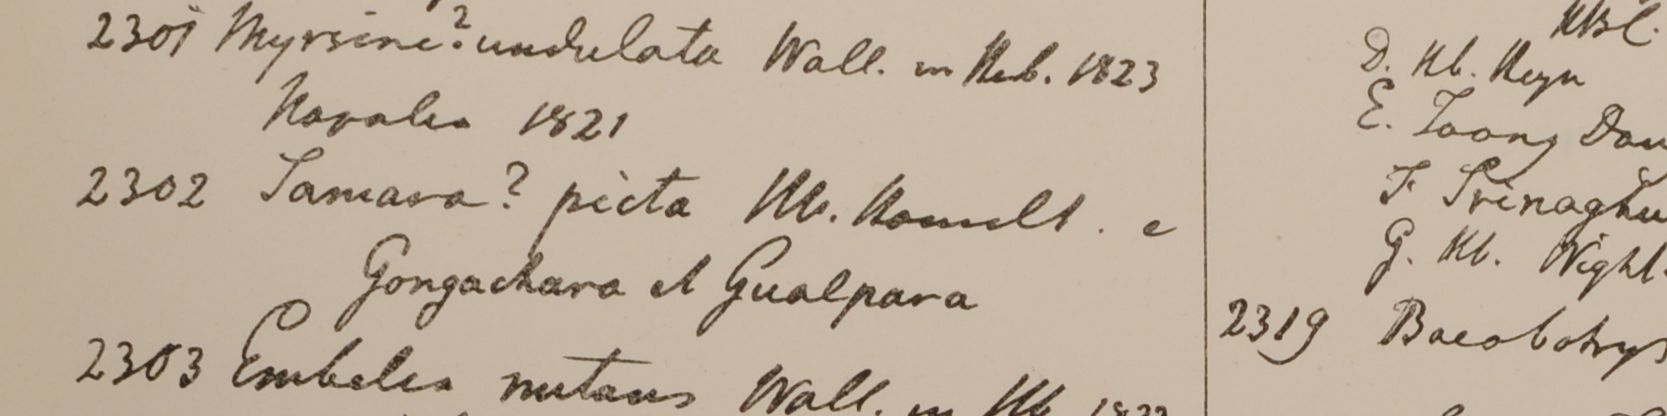 2301 Myrsine? undulata Wall. in Herb. 1823
Napalia 1821
2302 Samara? picta Hb. Hamilt. e
Gongachara et Gualpara
2303 Embelia nutans Wall. in Hb. 1822
HBC.
D. Hb. Heyn
E. Toong Dou
F. Srinaghu
G. Hb. Wight.
2319 Baeobotrys